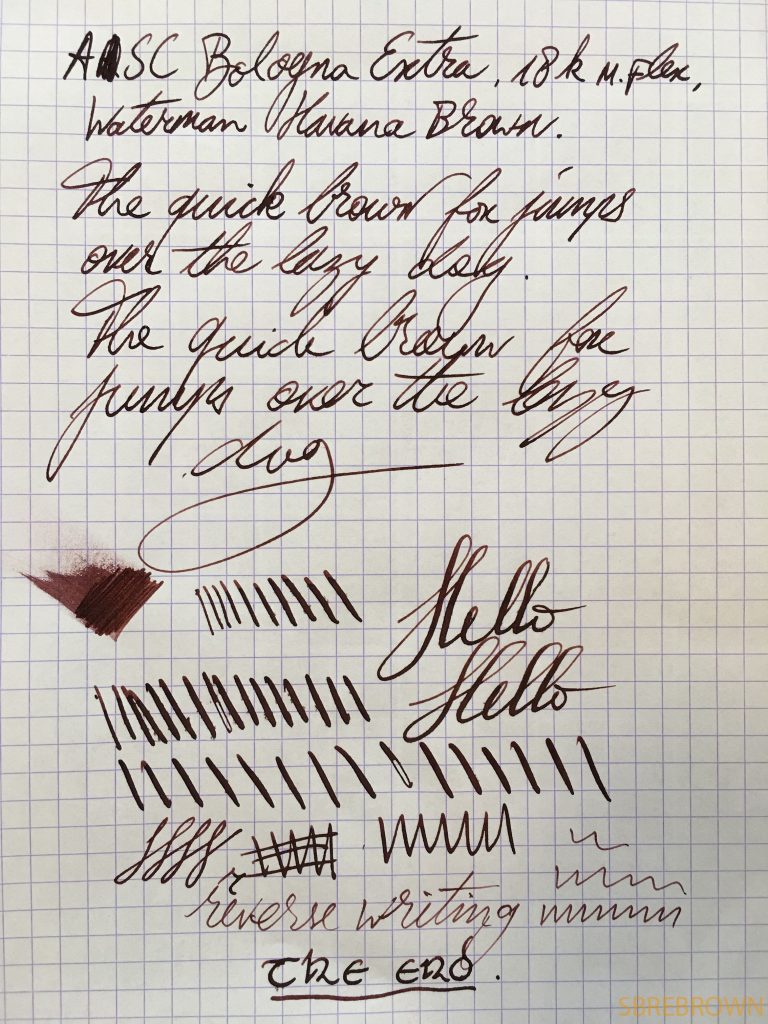 ASC Bologna Extra, 18k M. flex,
Waterman Havana Brown.
The quick brown fox jumps
over the lazy dog.
The quick brown fox
jumps over the lazy
dog
Hello
Hello
reverse writing
The end.
SBREBROWN